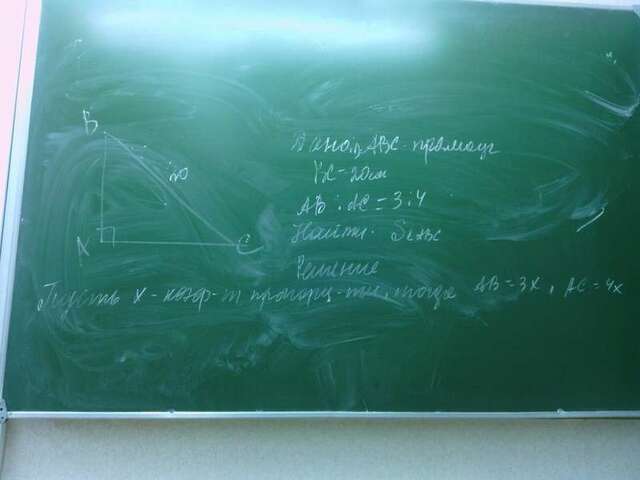 B
20
A
C
Дано: △ABC - прямоуг
BC = 20см
AB : AC = 3 : 4
Найти: S△ABC
Решение
Пусть x - коэф-т пропорц-ти, тогда AB = 3x, AC = 4x